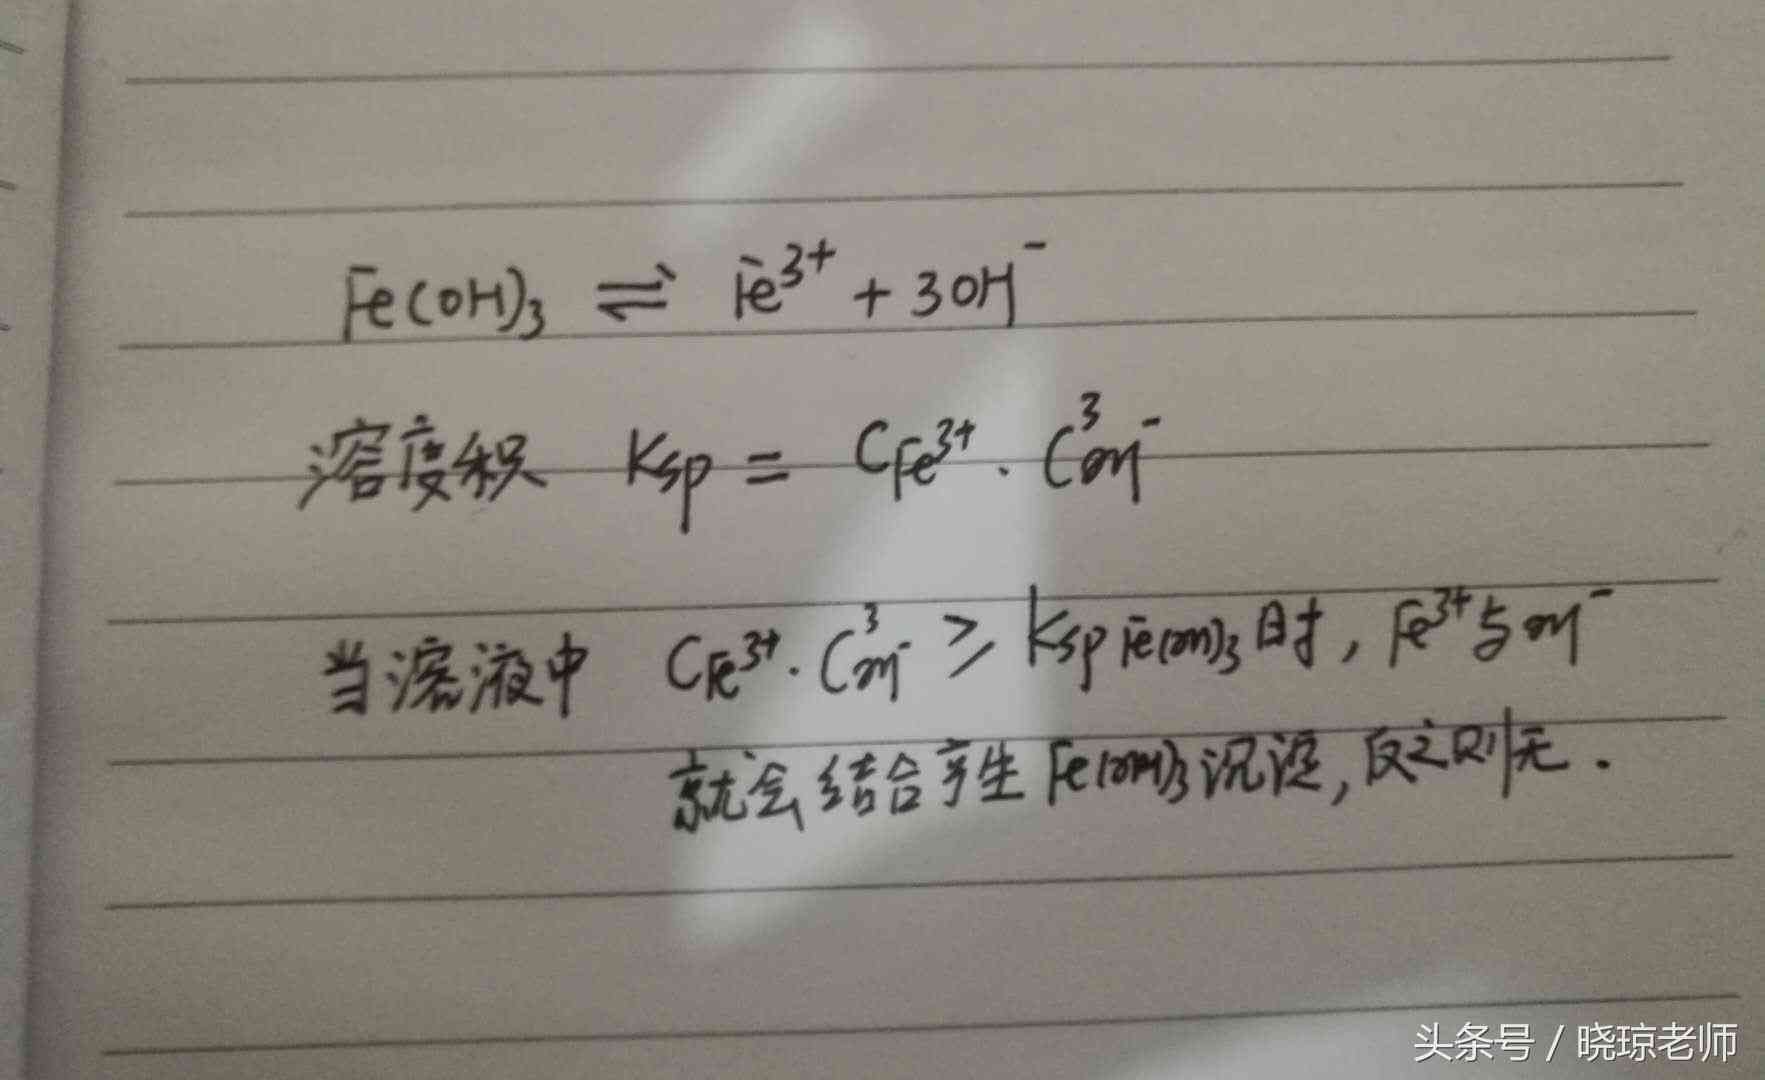 Fe(OH)₃ ⇌ Fe³⁺ + 3OH⁻
溶度积 Ksp = C_Fe³⁺ · C³_OH⁻
当溶液中 C_Fe³⁺ · C³_OH⁻ ≥ Ksp Fe(OH)₃ 时, Fe³⁺与OH⁻
就会结合产生 Fe(OH)₃ 沉淀, 反之则无.
头条号 / 晓琼老师